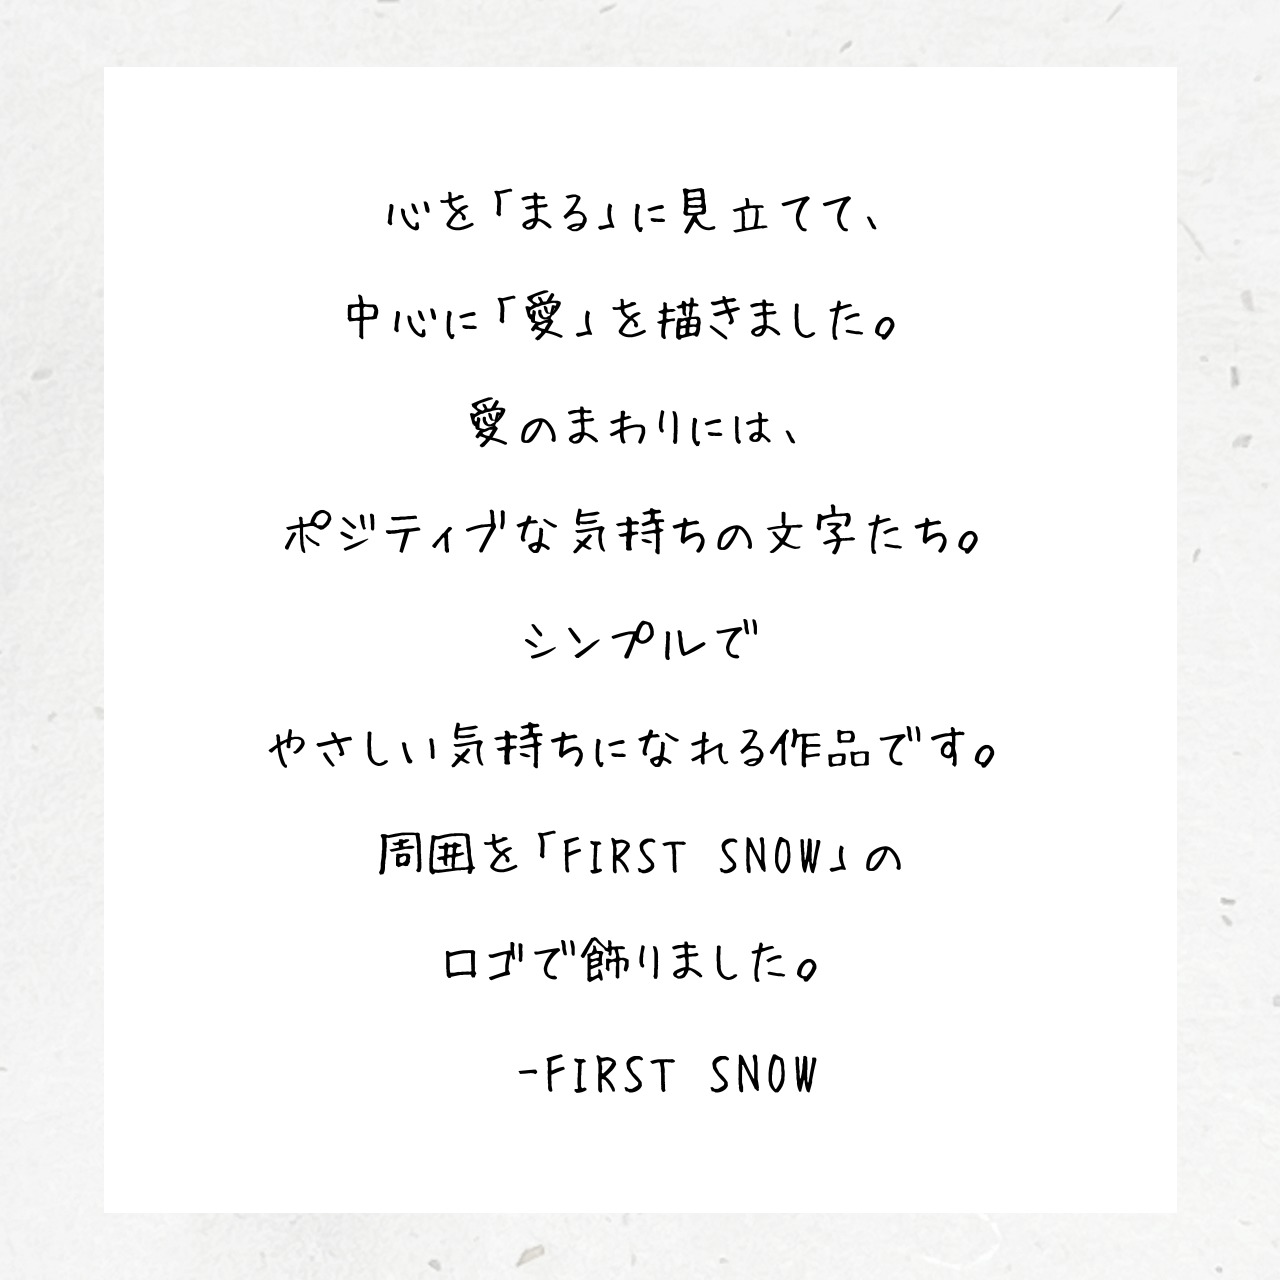 心を「まる」に見立てて、
中心に「愛」を描きました。
愛のまわりには、
ポジティブな気持ちの文字たち。
シンプルで
やさしい気持ちになれる作品です。
周囲を「FIRST SNOW」の
ロゴで飾りました。
-FIRST SNOW